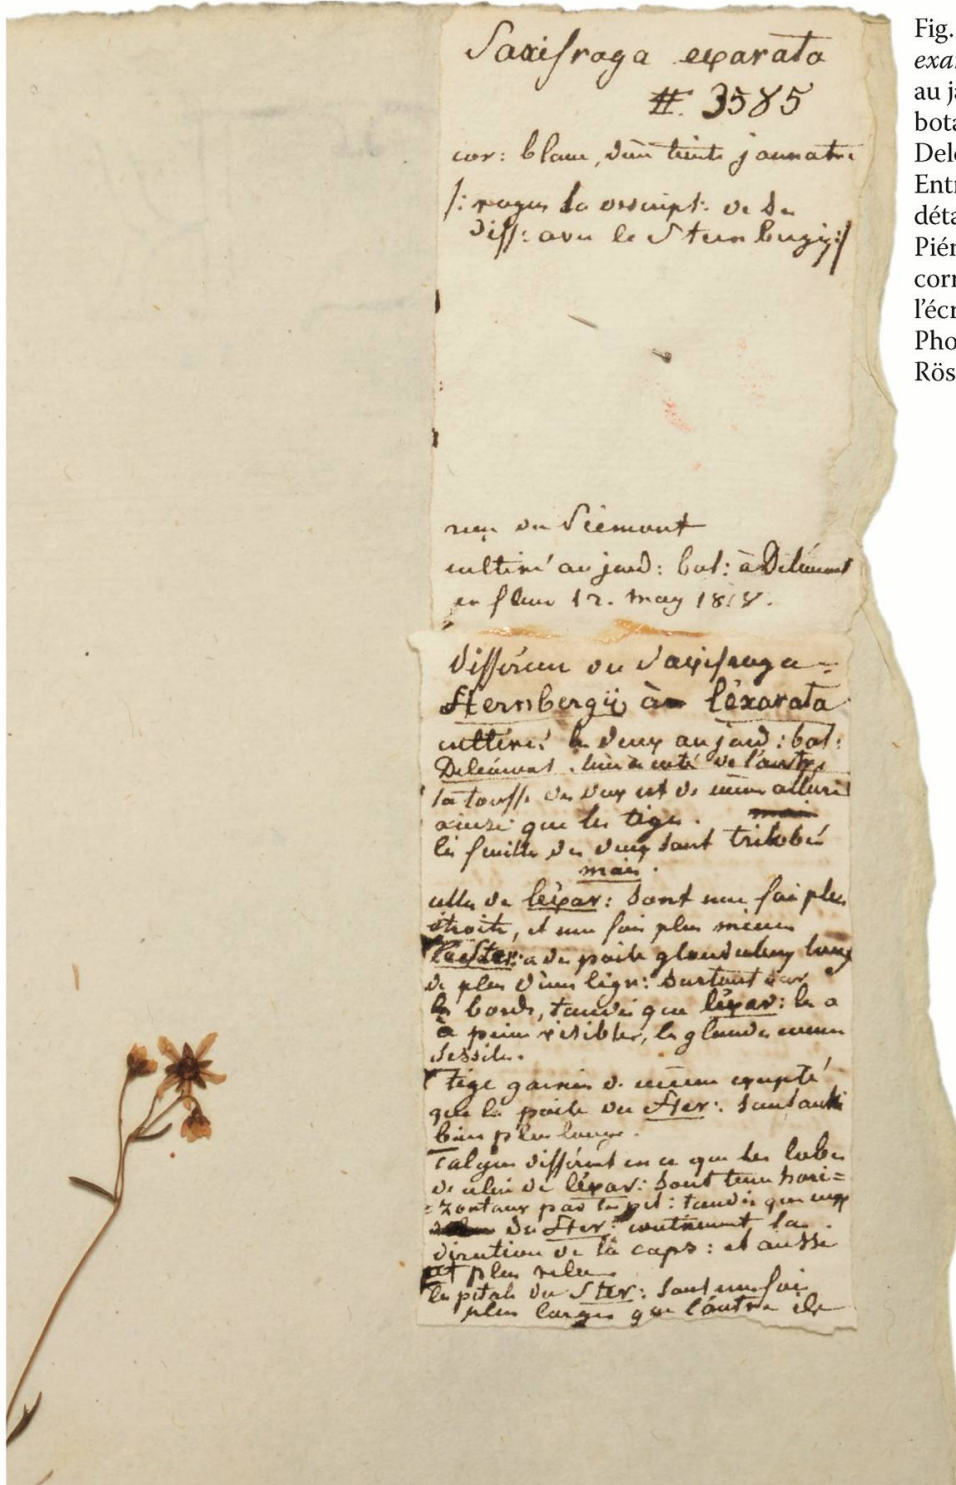 Saxifraga exarata
#. 3585
cor: blanc, d'un teinte jaunatre
/: voyez la descript: de sa
diff: avec le Sternbergij :/
reçu du Piémont
cultivé au jard: bot: à Delémont
en fleur 12. may 1818.
Différence du Saxifraga =
Sternbergij à l'exarata
cultivé: les deux au jard: bot:
Delémont, l'un à coté de l'autre
la touffe des deux est de même allure
ainsi que les tiges.
les feuilles des deux sont trilobés
mais.
celles de l'exar: sont une fois plus
étroite, et une fois plus minces
le Ster: a des poils glanduleux long
de plus d'une ligne: surtout sur
les bords, tandis que l'exar: les a
à peine visibles, les glandes même
sessiles.
Tige garnies de même excepté
que les poils du Ster: sont aussi
bien plus longs.
Calyce différent en ce que les lobes
de celui de l'exar: sont tenu hori=
=zontaux par les pet: tandis que ceux
du Ster: continuent la
direction de la caps: et aussi
plus velu
les pétals du Ster: sont une fois
plus larges que l'autre
Fig.
exa
au j
bota
Del
Ent
déta
Pié
cor
l'éc
Pho
Rös